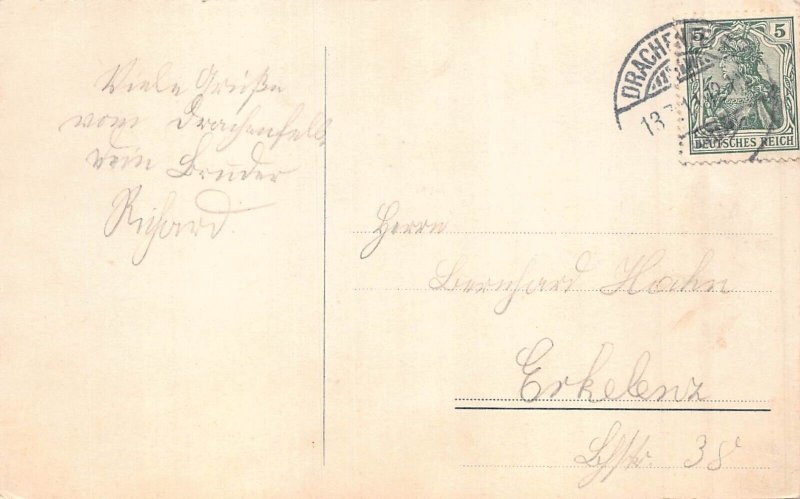 Viele Grüße
vom Drachenfels
dein Bruder
Richard
DRACHENF
13.7
5 5
DEUTSCHES REICH
Herrn
Bernhard Hahn
Erkelenz
38